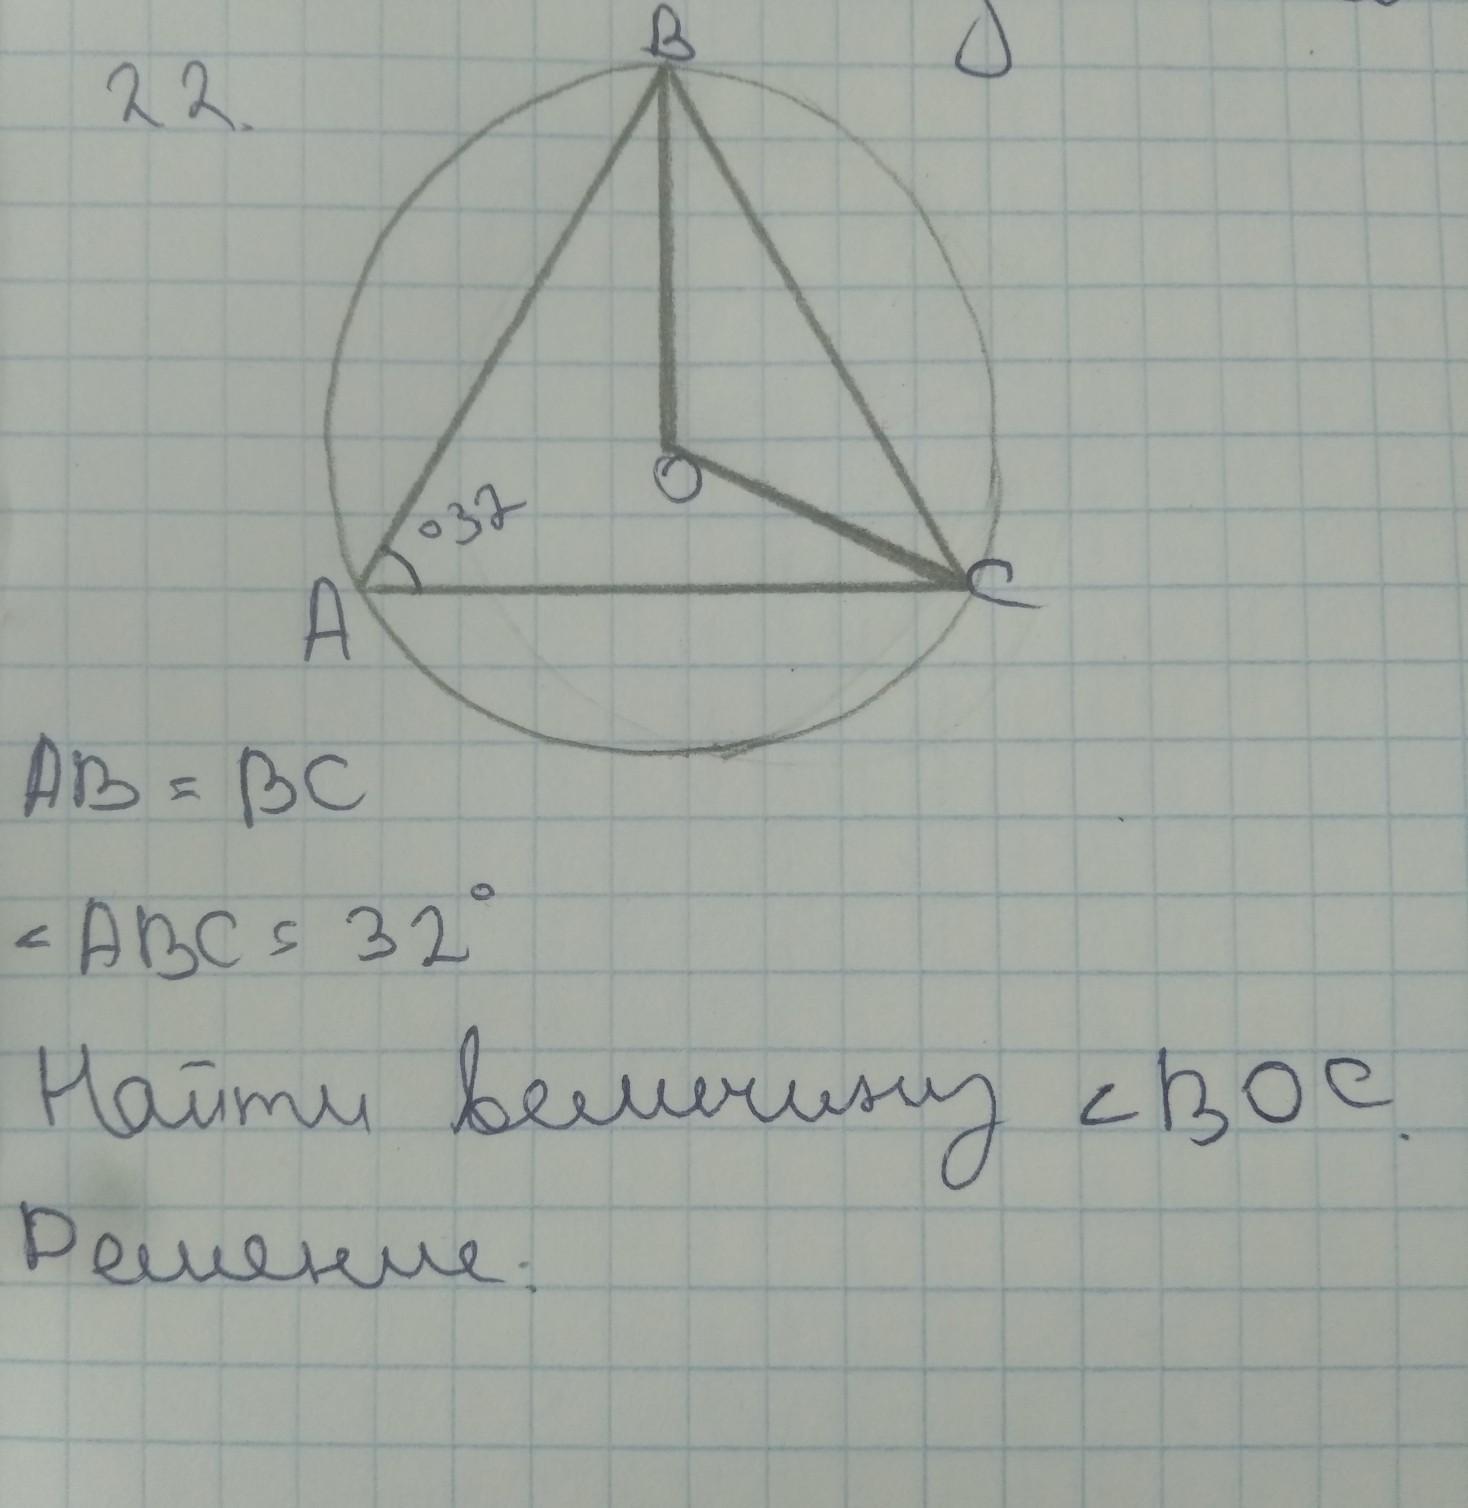 22.
B
O
°37
A
C
AB = BC
< ABC = 32°
Найти величину < BOC.
Решение: